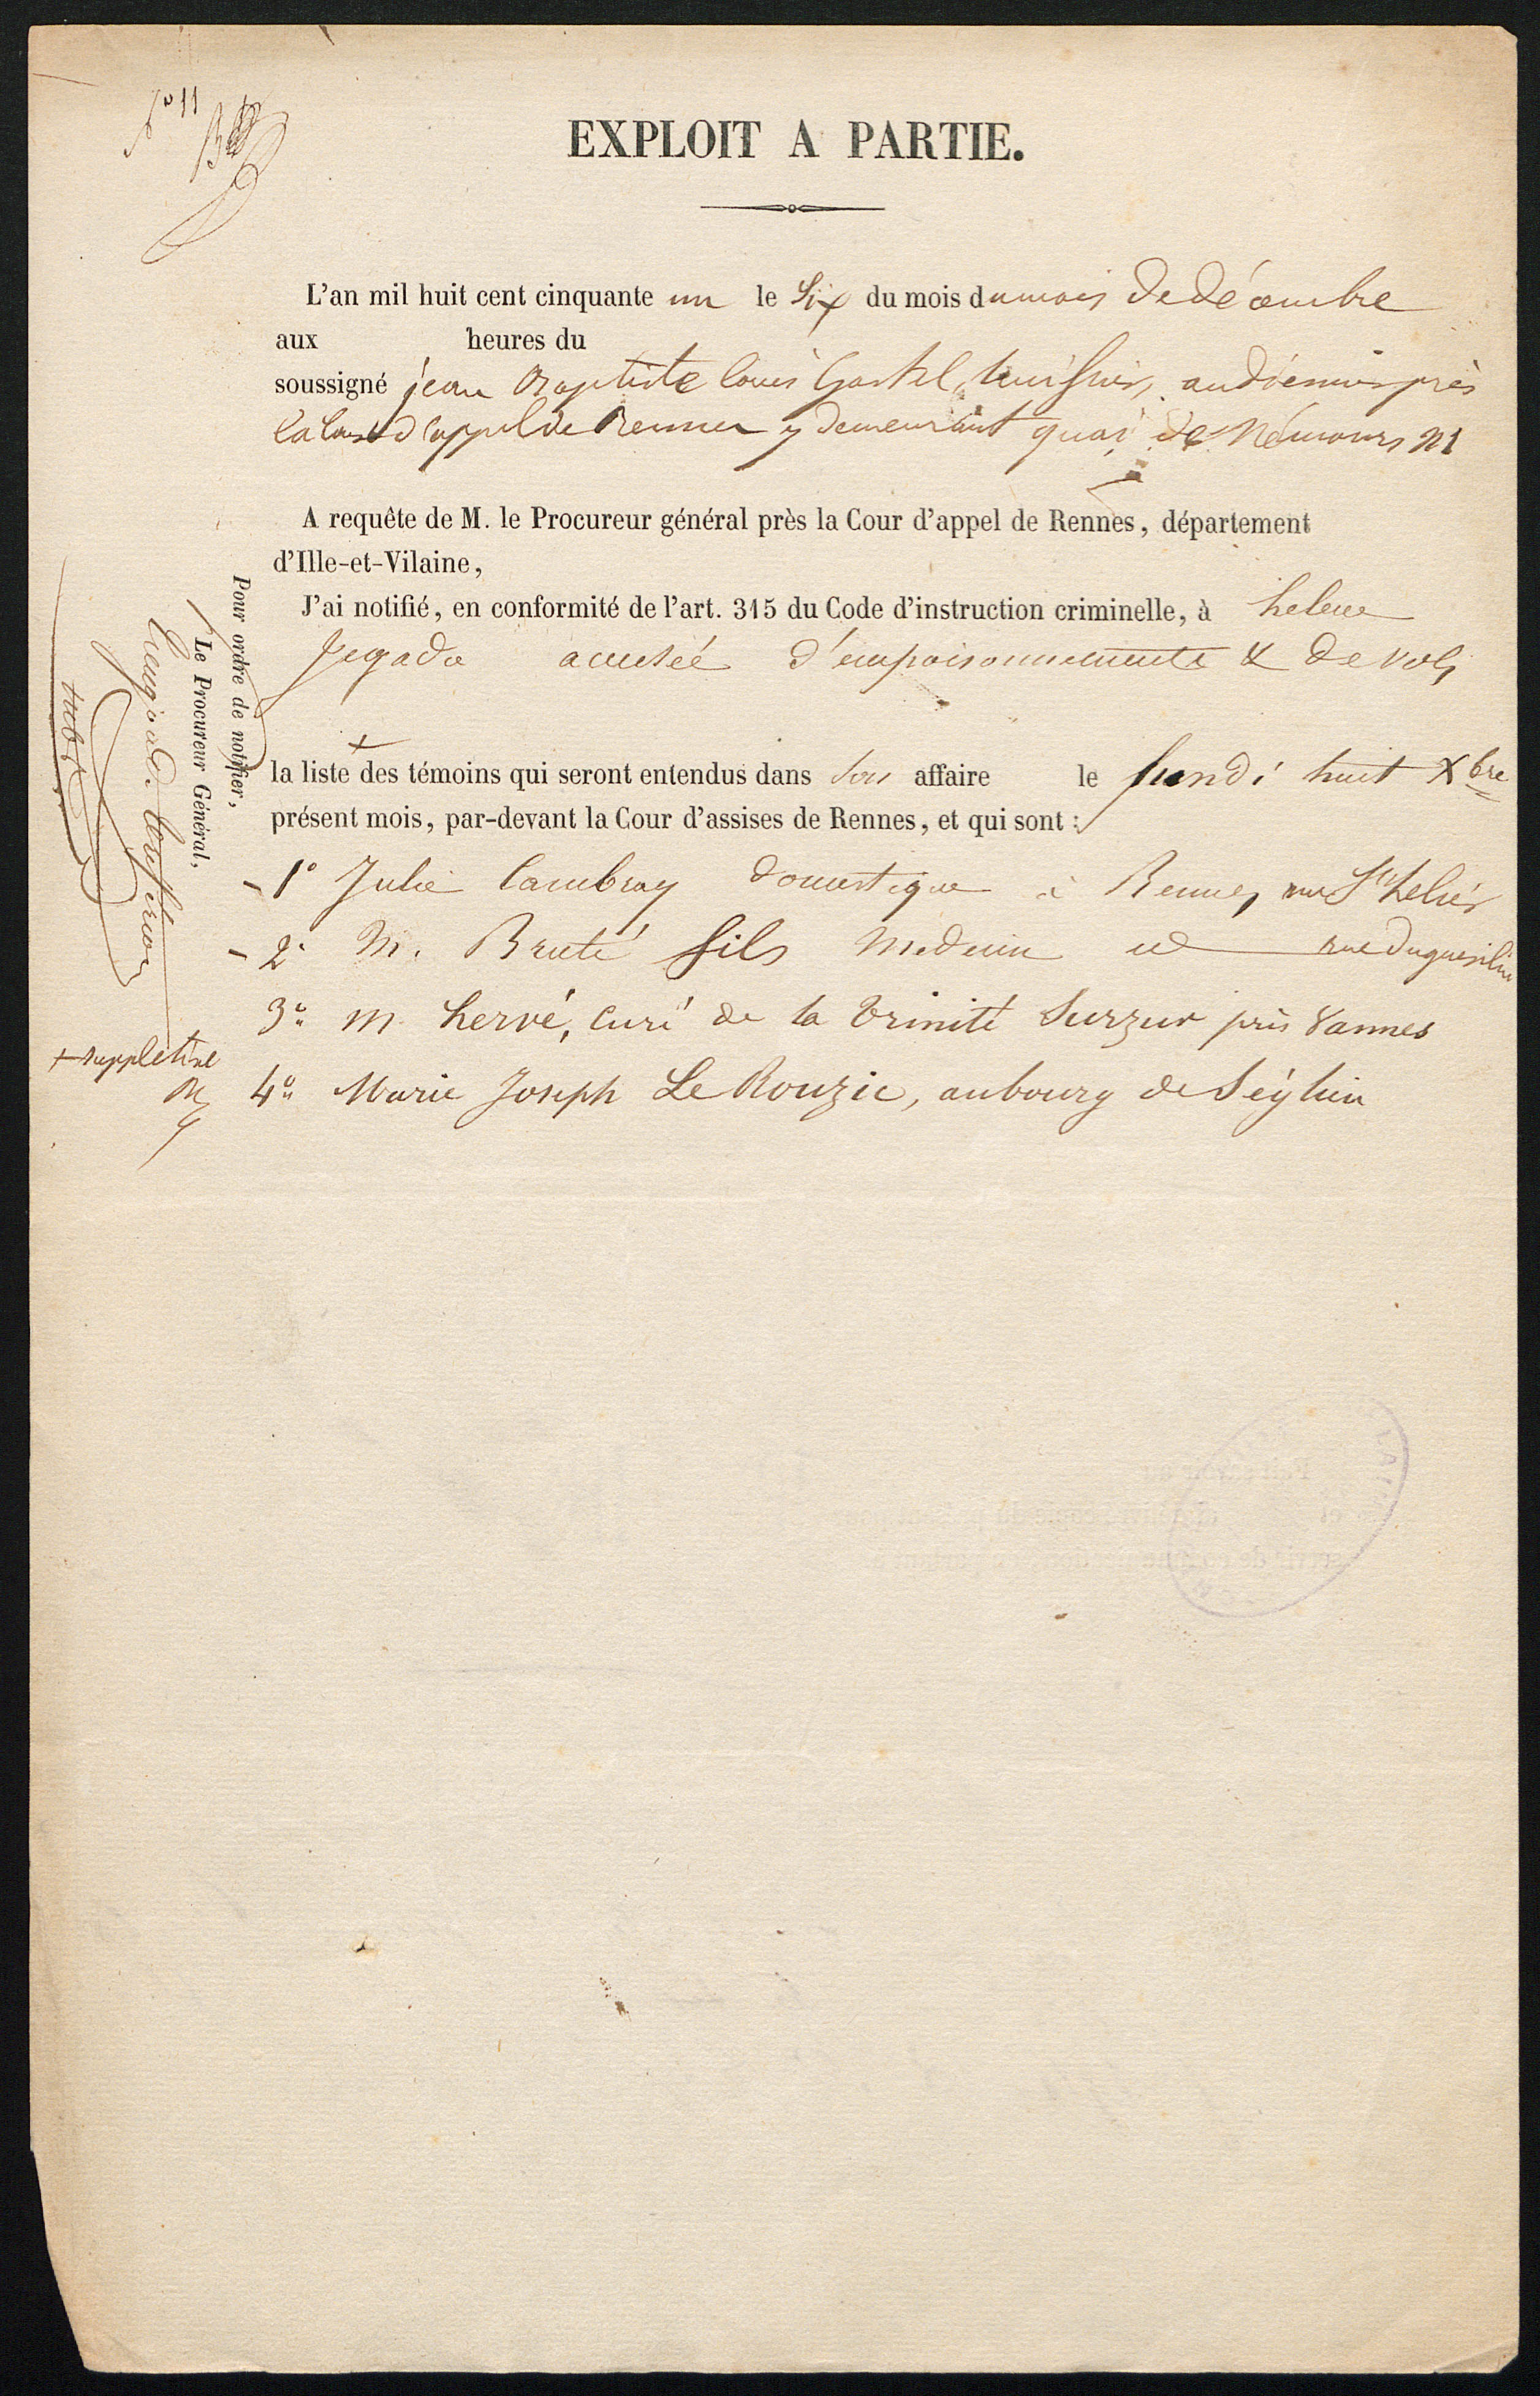 N° 11
EXPLOIT A PARTIE.
L'an mil huit cent cinquante un le Six du mois du mois de décembre
aux heures du
soussigné jean Baptiste louis Gastel, huissier, audiencier près
la Cour d'appel de Rennes y demeurant quai de Némours n1
A requête de M. le Procureur général près la Cour d'appel de Rennes, département
d'Ille-et-Vilaine,
J'ai notifié, en conformité de l'art. 315 du Code d'instruction criminelle, à helene
Jegado accusée d'empoisonnements & de vols
+
la liste des témoins qui seront entendus dans son affaire le lundi huit Xbre
présent mois, par-devant la Cour d'assises de Rennes, et qui sont :
- 1° Julie Cambray domestique à Rennes, rue St helier
- 2° M. Bruté fils medecin id rue duguesclin
3° M. hervé, curé de la Trinité Surzur près Vannes
4° Marie Joseph Le Bouzic, au bourg de Séglien
Pour ordre de notifier,
Le Procureur Général,
subst
+ suppletive